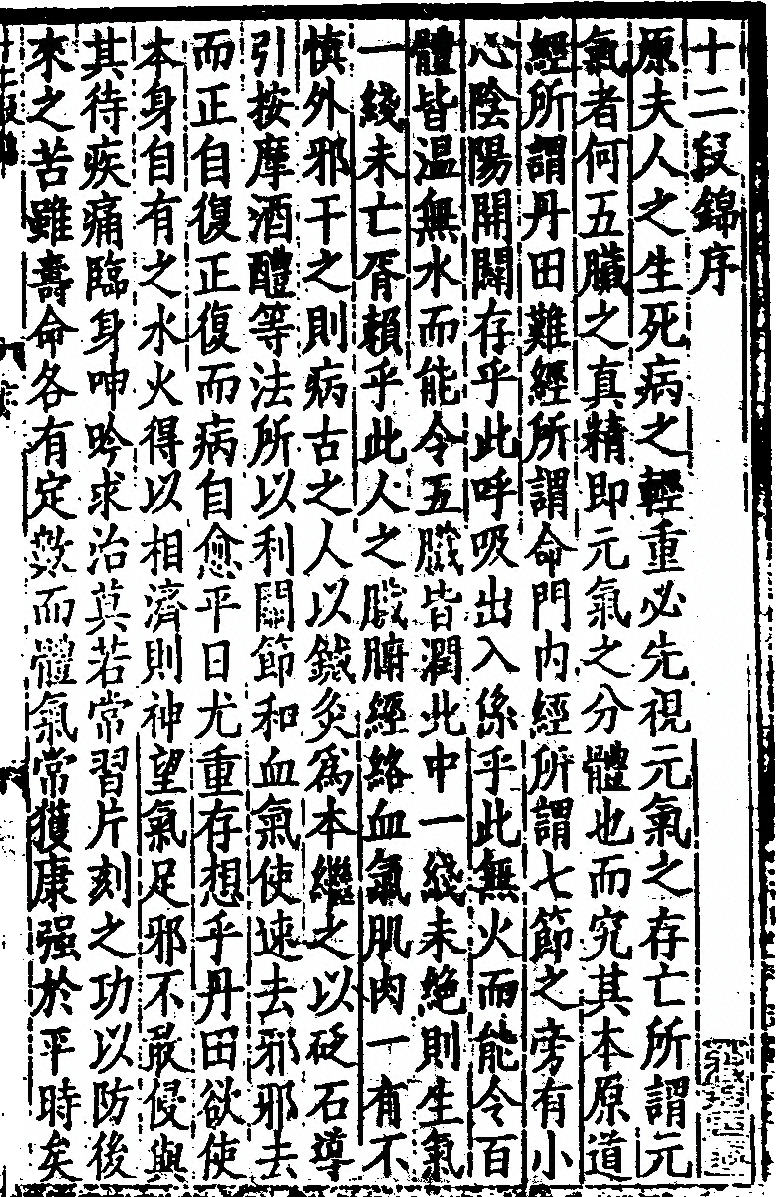 十二段錦序
原夫人之生死病之輕重必先視元氣之存亡所謂元
氣者何五臟之真精即元氣之分體也而究其本原道
經所謂丹田難經所謂命門内經所謂七節之旁有小
心陰陽開闢存乎此呼吸出入係乎此無火而能令百
體皆温無水而能令五臓皆潤此中一綫未絶則生氣
一綫未亡胥賴乎此人之臓腑經絡血氣肌肉一有不
慎外邪干之則病古之人以鍼灸爲本繼之以砭石導
引按摩酒醴等法所以利關節和血氣使速去邪邪去
而正自復正復而病自愈平日尤重存想乎丹田欲使
本身自有之水火得以相濟則神望氣足邪不敢侵與
其待疾痛臨身呻吟求治莫若常習片刻之功以防後
來之苦雖壽命各有定數而體氣常獲康强於平時矣